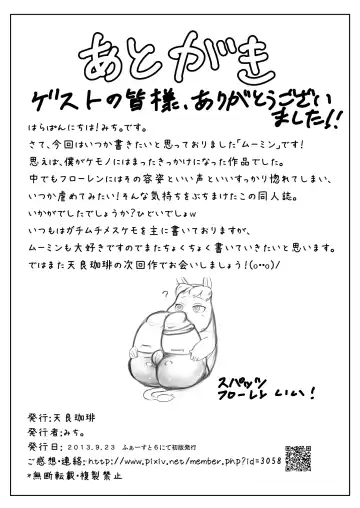 あとがき
ゲストの皆様、ありがとうござい
ました!!
はらぱんにちは!みち。です。
さて、今回はいつか書きたいと思っておりました「ムーミン」です!
思えば、僕がケモノにはまったきっかけになった作品でした。
中でもフローレンにはその容姿といい声といいすっかり惚れてしまい、
いつか虐めてみたい!そんな気持ちをぶちまけたこの同人誌。
いかがでしたでしょうか?ひどいでしょw
いつもはガチムチメスケモを主に書いておりますが、
ムーミンも大好きですのでまたちょくちょく書いていきたいと思います。
ではまた天良珈琲の次回作でお会いしましょう!(o··o)/
?
スパッツ
フローレン いい!
発行:天良珈琲
発行者:みち。
発行日: 2013.9.23 ふぁーすと6にて初版発行
ご感想・連絡: http://www.pixiv.net/member.php?id=3058
*無断転載・複製禁止